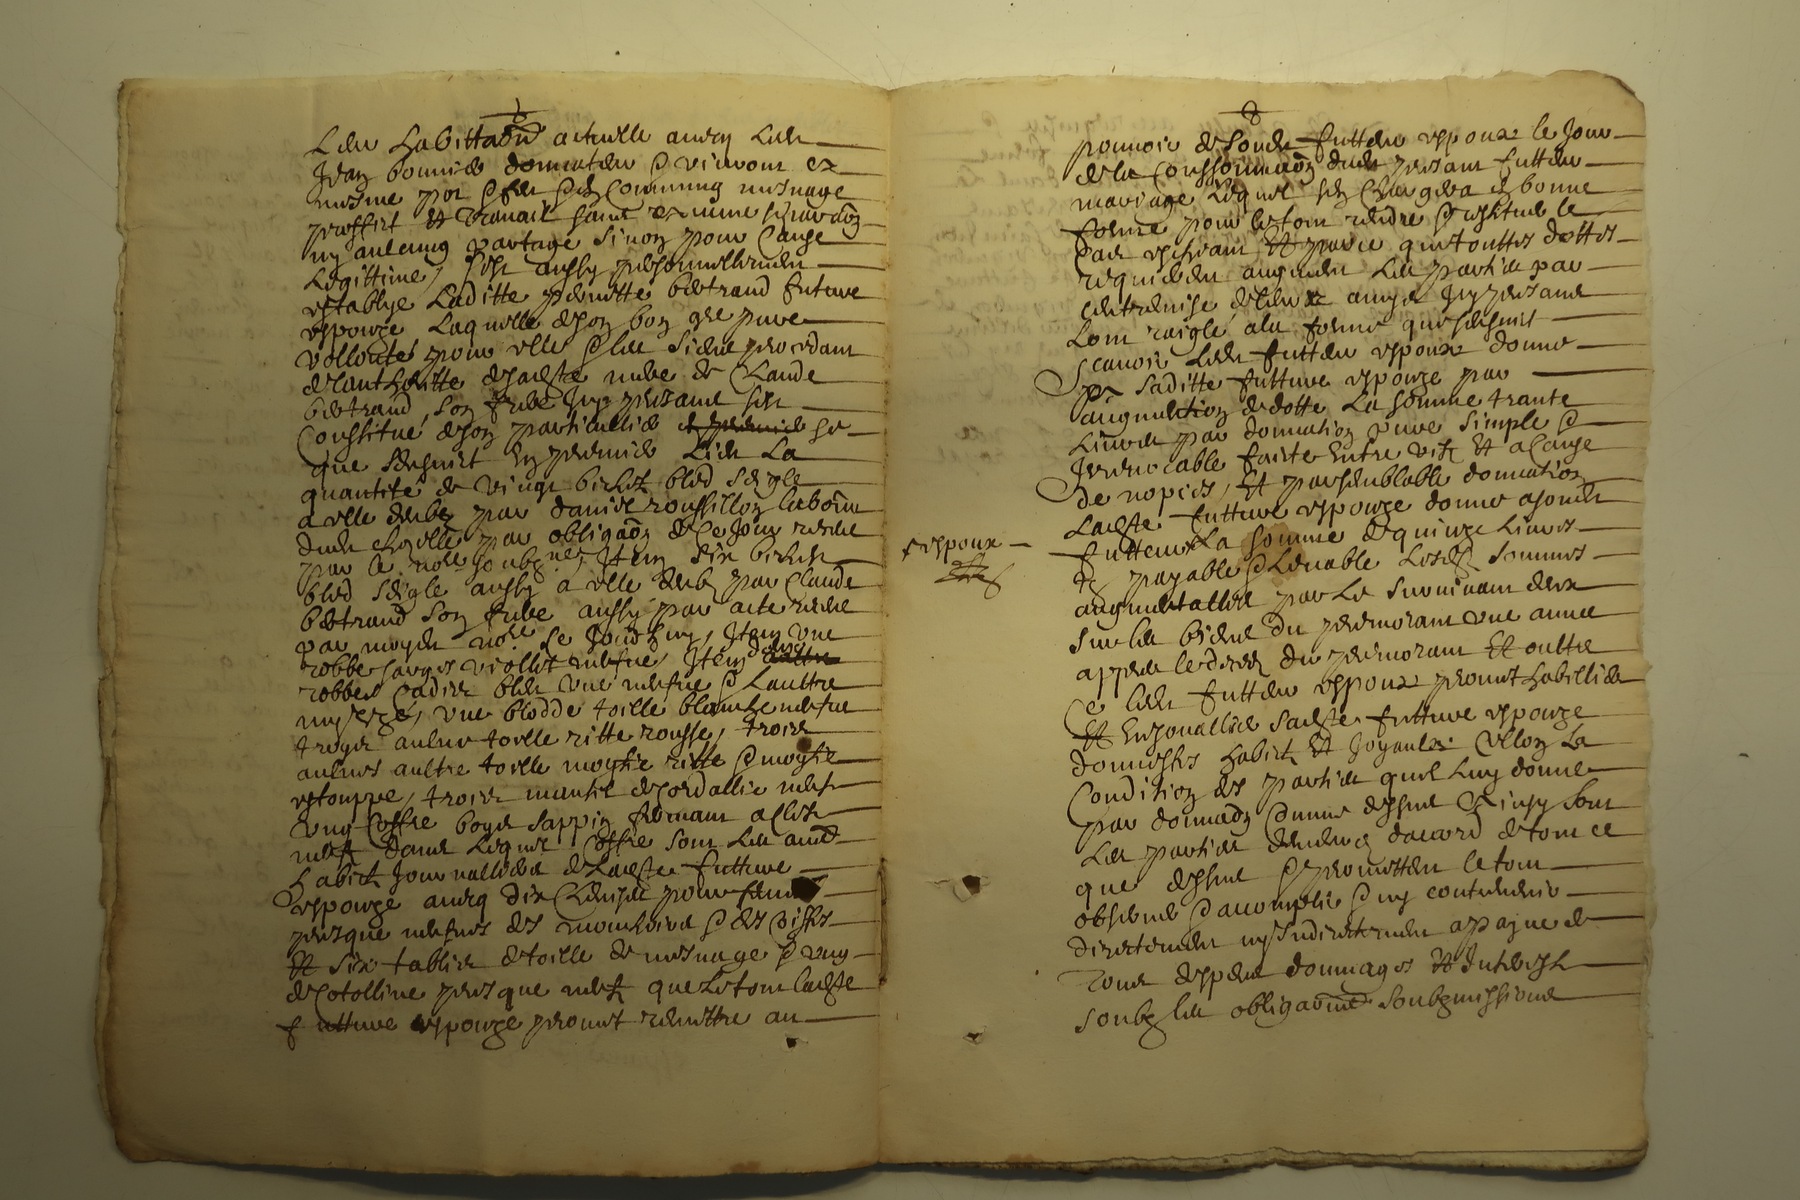 Leur habittaon actuelle avecq led
Jean bonnier donnateur & vivront en
mesme pot & feu & en commung mesnage
proffict et travail sans en nune
ny aulcung partage sinon pour cause
Legittime, sest aussy personnellement
establye Laditte pernette bertrand future
espouze Laquelle de son bon gre pure
vollonté pour elle & les siens procedant
de lauthoritte de sadte mere de Claude
bertrand son frere Icy present sest
Constitué de son particullier ce
que sensuict En premier lieu La
quantité de vingt bichetz bled seigle
a elle deubz par danier roussillon laboureur
dud par obligaon de ce Jour receue
par le nore soubzne, Item six bichetz
bled seigle aussy a elle deubz par Claude
bertrand son frere aussy par acte receue
par moyed nore ce Jourdhuy, Item une
robbe sarges viollet neufve, Item deux
robbes cadier bleu une neufve & Laultre
my uzé, une blodde toille blanche neufve
treger aulnes toille ritte rousse, troies
aulnes aultre toille moytie ritte & moytie
estouppe, troies mantis de cordallie neufs
Ung Coffre boyes sappin fermant a clefz
neuf dans Lequel Coffre sont Les
habitz Journalliers de Ladte future
espouze avecq dix chemises pour femme
presque neufves des mouchoirs & des coiffes
et six tabliers de toille de mesnage & ung
de cotolline presque neufz que Le tout ladte
future espouze promet remettre au
pouvoir de sond futteur espoux le Jour
de la Consommaon dud present futteur
mariage Lequel sen chargera en bonne
forme pour le tout rendre & restitue le
cas escheant et parce que touttes dottes
requierent augment Les parties par
Lentremise de leurs amys Icy present
Lont raigle a la forme que sensuit
Scavoir Led futteur espoux donne
a saditte future espouze par
augmentation de dotte La somme trante
Livres par donnation pure simple &
Irrevocable faicte Entre vifz et a Cause
de nopces, et par semblable donnation
Ladte future espouze donne a sond
futteur La somme de quinze Livres
+ espoux
tz payable & Levable Lesd sommes
augmentalles par Le survivant deux
sur les biens du premorant une annee
appres le deces du premorant et oultre
Ce led futteur espoux promet habillier
et Enjoualler sadte future espouze
donnestes habitz et Joyaulx cellon La
Condition des parties quil Luy donne
par donnaon comme dessus & ainsy sont
Les parties demeures daccord de tout ce
que dessus & promettent le tout
observer & accomplir & ny contrevenir
directement ny Indirectement a payne de
tous despens dommages et Interestz
soubz les obligaons soubzmissions